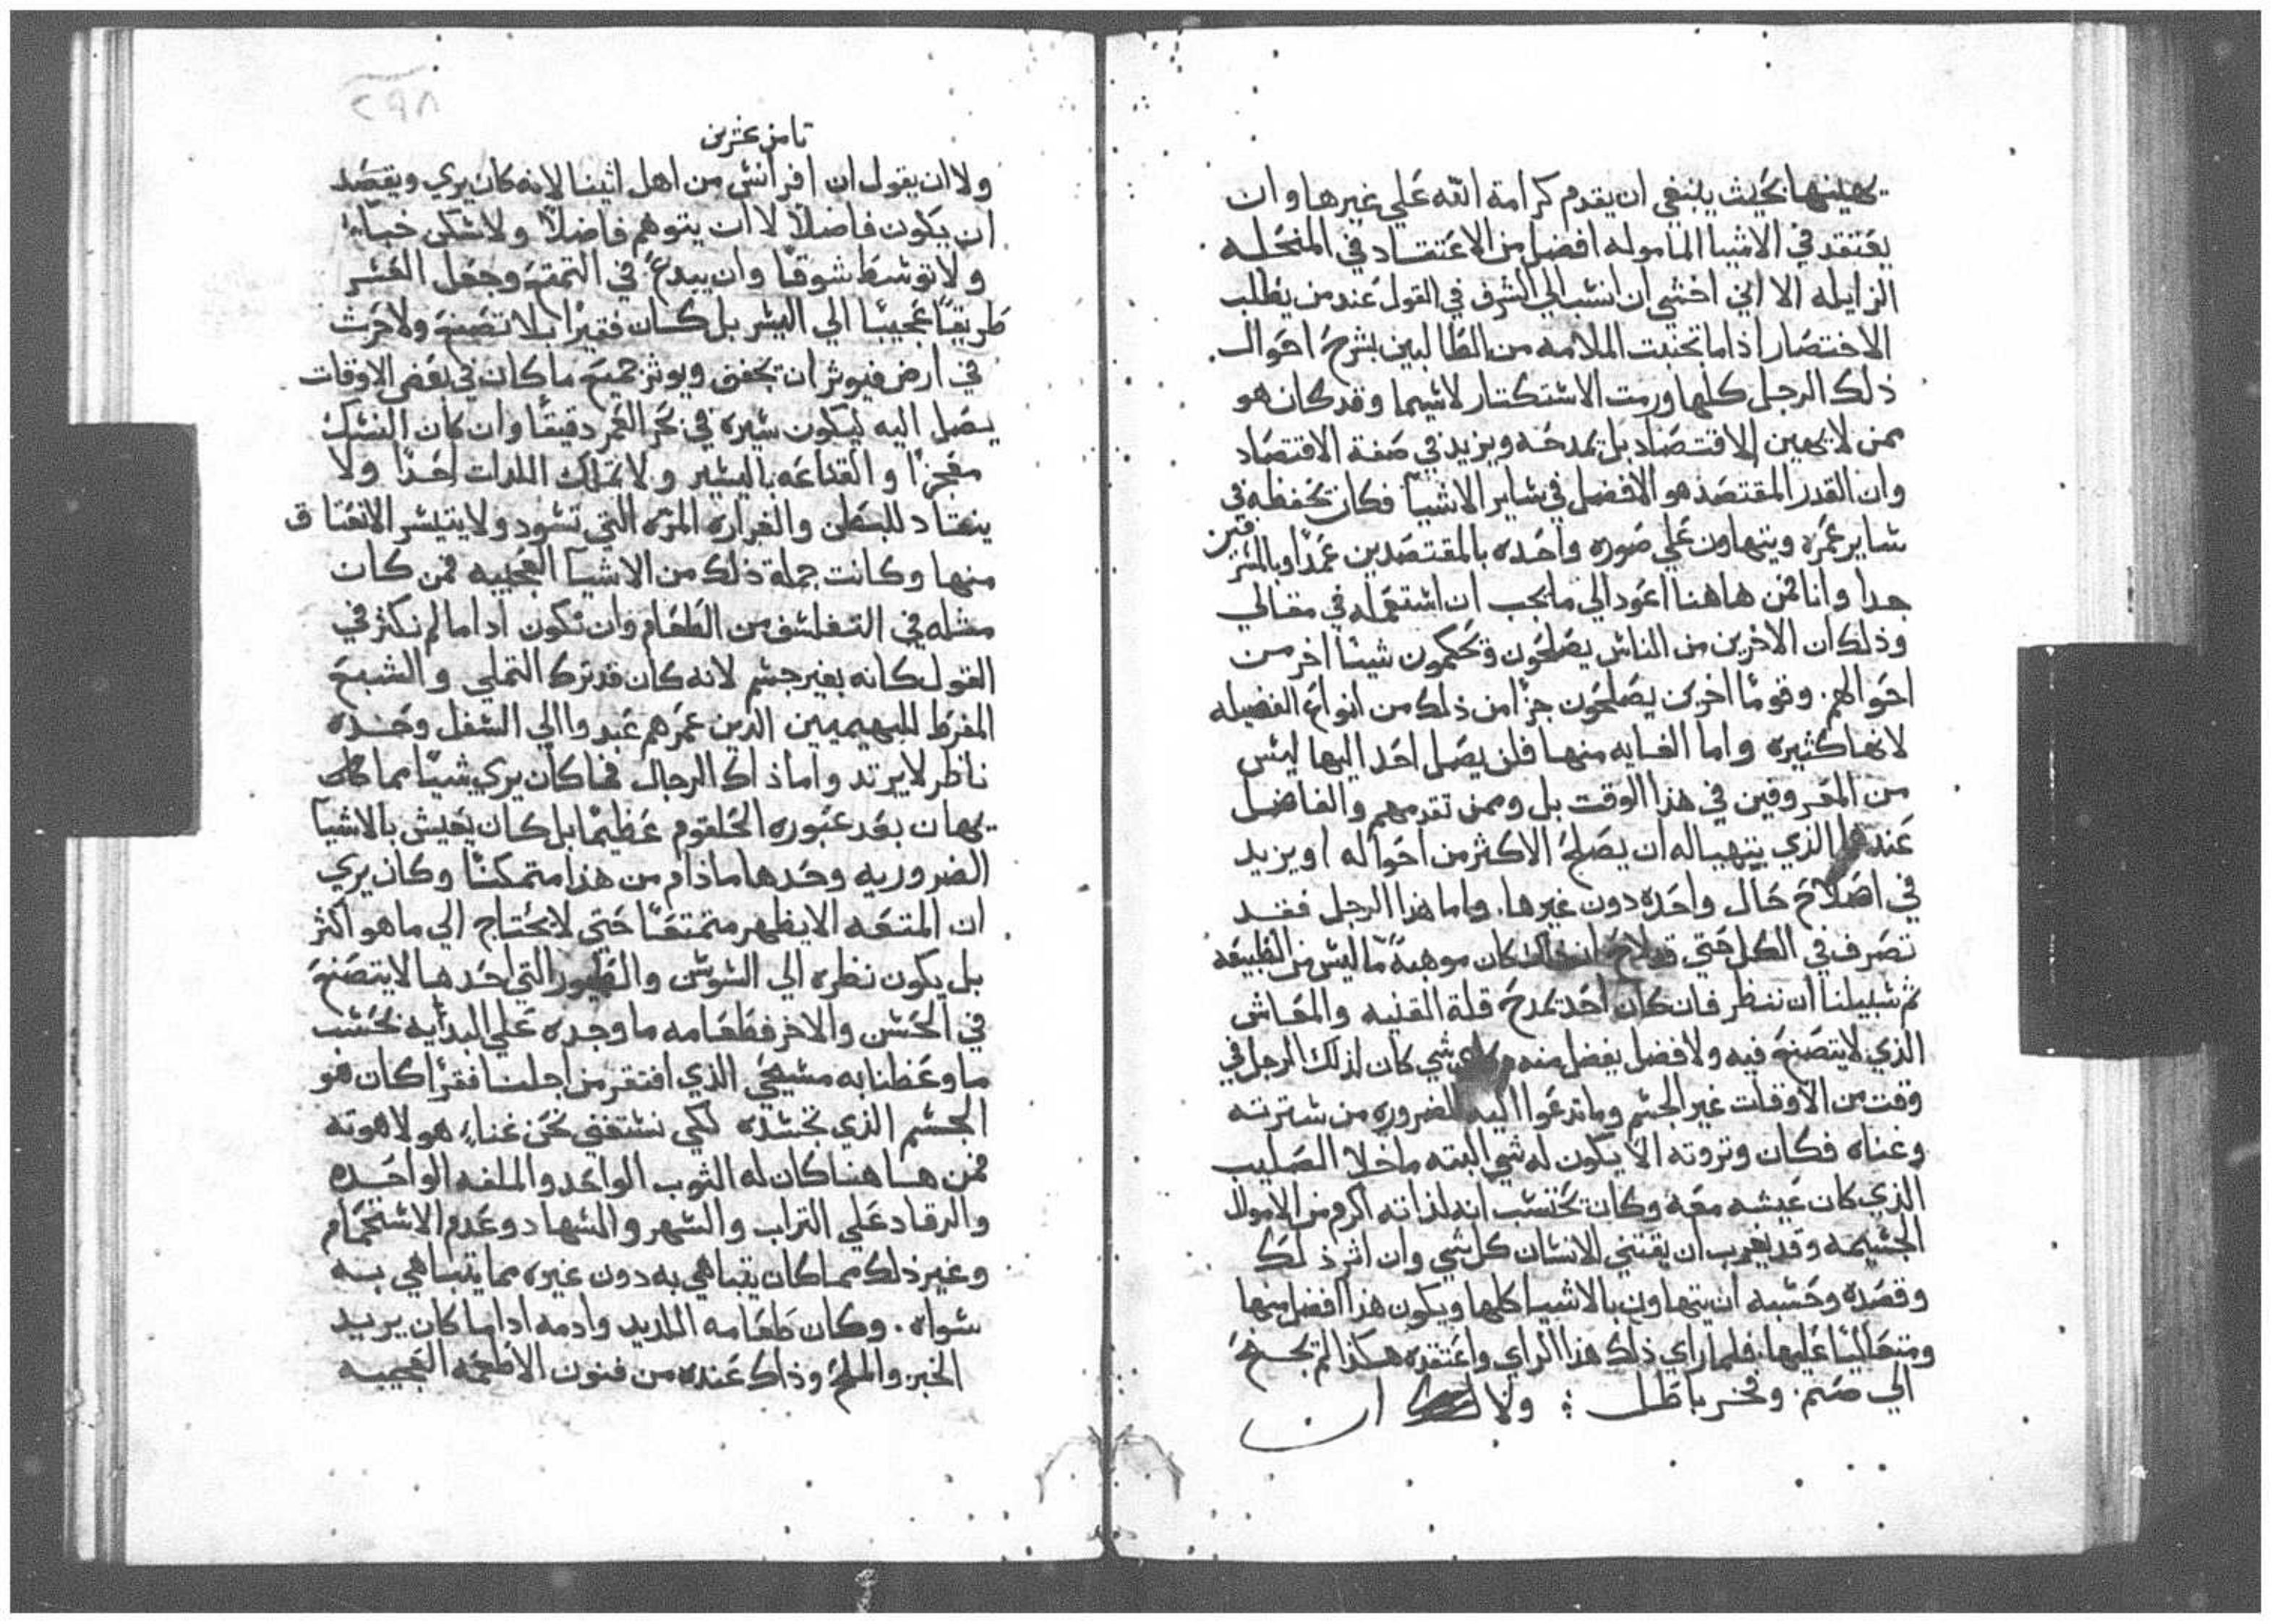 يهينها بحيث ينبغي ان يقدم كرامة الله علي غيرها وان
يعتقد في الاشيا الماموله افضل من الاعتقاد في المنحله
الزايله الا اني اخشي ان انسب الي الشرف في القول عند من يطلب
الاختصار اذاما تجنبت الملامه من الطالبين بشرح احوال
ذلك الرجل كلها ورمت الاستكتار لاسيما وقد كان هو
ممن لا يهين الاقتصاد بل يمدحه ويزيد في صفة الاقتصاد
وان القدر المقتصد هو الافضل في ساير الاشيا فكان يحفظه في
ساير عمره ويتهاون علي صوره واحده بالمقتصدين عمدا وبالمترفين
جدا وانا فمن هاهنا اعود الي ما يجب ان استعمله في مقالي
وذلك ان الاخرين من الناس يصلحون ويحكمون شيئا اخر من
احوالهم. وقوما اخرين يصلحون جزا من ذلك من انواع الفضيله
لانها كثيره واما الغايه منها فلن يصل احد اليها ليس
من المعروفين في هذا الوقت بل وممن تقدمهم والفاضل
عندها الذي يتهيا له ان يصلح الاكثر من احواله او يزيد
في اصلاح حال واحده دون غيرها. واما هذا الرجل فقد
تصرف في الكل حتي قد لاح ان ذلك كان موهبة ما ليس من الطبيعه
ثم سبيلنا ان ننظر فان كان احد يمدح قلة القنيه والمعاش
الذي لا يتصنع فيه ولا فضل يفضل منه شي كان لذلك الرجل في
وقت من الاوقات غير الجسم وما تدعوا اليه الضروره من سترته
وغناه فكان وثروته الا يكون له شي البته ما خلا الصليب
الذي كان عيشه معه وكان يحتسب انه لذاته اكرم من الاموال
الجسيمه وقد يغرب ان يقتني الانسان كل شي وان اثر ذلك
وقصده وحسبه ان يتهاون بالاشيا كلها ويكون هذا افضل منها
ومتعاليا عليها. فلما راي ذلك هذا الراي واعتقده هكذا لم يحتج
الي صنم. وفخر باطل ؛ ولا ان
٢٩٨
تامن عشرين
ولا ان يقول ان اقراتس من اهل اثينا لانه كان يري ويقصد
ان يكون فاضلا لا ان يتوهم فاضلا ولا سكن خباء
ولا توسط سوقا وان يبدع في التمتع وجعل العسر
طريقا عجيبا الي اليسر بل كان فقيرا بلا تصنع ولا حرث
في ارض فيوثر ان يخفق ويوثر جميع ما كان في بعض الاوقات
يصل اليه ليكون سيره في بحر العمر دقيقا وان كان النسك
معجزا والقناعه باليسير ولا تملك اللدات احدا ولا
ينقاد للبطن والغراره المره التي تسود ولا يتيسر الانعتاق
منها وكانت جملة ذلك من الاشيا العجيبه فمن كان
مثله في التفلسف من الطعام وان نكون اداما لم نكثر في
القول كانه بغير جسم لانه كان قد ترك التملي والشبع
المفرط للبهيميين الدين عمرهم عبدوا الي السفل وحده
ناظر لا يرتد واما ذاك الرجال فما كان يري شيا مما كان
يهان بعد عبوره الحلقوم عظيما بل كان يعيش بالاشيا
الضروريه وحدها مادام من هذا متمكنا وكان يري
ان المتعه الا يظهر متمتعا حتي لا يحتاج الي ما هو اكثر
بل يكون نظره الي السوسن والطيور التي احدها لا يتصنع
في الحسن والاخر فطعامه ما وجده علي البدايه بحسب
ما وعظنا به مسيحي الذي افتقر من اجلنا فقرا كان هو
الجسم الذي تجسده لكي نستغني نحن غناء هو لاهوته
فمن هاهنا كان له الثوب الواحد والملفه الواحده
والرقاد علي التراب والسهر والسهاد وعدم الاستحمام
وغير ذلك مما كان يتباهي به دون غيره مما يتباهي به
سواه. وكان طعامه اللديد وادمه اداما كان يريد
الخبز والملح وذاك عنده من فنون الاطعمه العجيبه